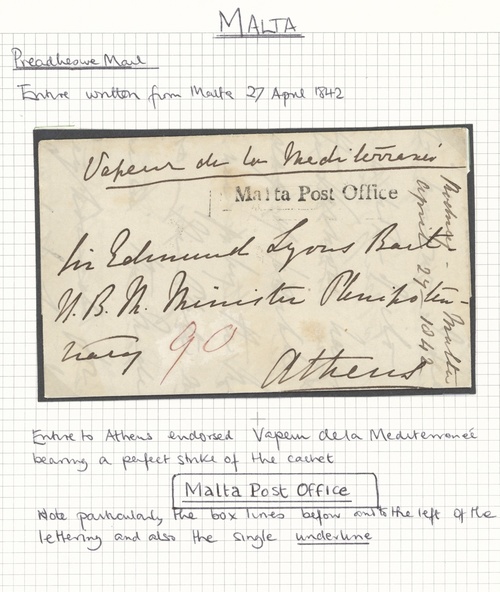 MALTA
Preadhesive Mail
Entire written from Malta 27 April 1842
Vapeur de la Mediterranée
Malta Post Office
Sir Edmund Lyons Bart.
H.B.M. Minister Plenipoten-
tiary
90
Athens
Malta
April 27 1842
Entire to Athens endorsed Vapeur de la Mediterroneé
bearing a perfect strike of the cachet
Malta Post Office
Note particularly, the box lines below and to the left of the
lettering and also the single underline